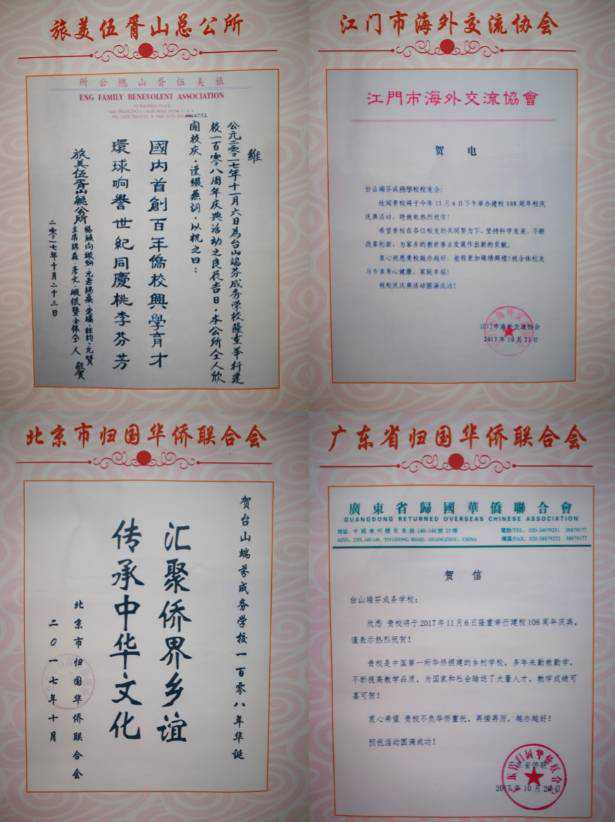 旅美伍胥山总公所
旅美伍胥山總公所
ENG FAMILY BENEVOLENT ASSOCIATION
維
公元二零一七年十一月六日為台山端芬成务学校隆重举行建
校一百零八周年庆典活动之良辰吉日,本公所全人欣
闻校庆,谨缀燕词,以祝之曰:
國内首創百年僑校興學育才
環球响誉世纪同慶桃李芬芳
旅美伍胥山總公所
敬賀
二零一七年十月二十三日
江门市海外交流协会
江門市海外交流協會
贺 电
台山端芬成務學校校友会:
欣闻贵校将于今年11月6日下午举办建校108周年校庆
庆典活动,特致电热烈祝贺!
希望贵校在各位校友的共同努力下,坚持科学发展,不断
改革创新,为家乡的教育事业发展作出新的贡献。
衷心祝愿贵校越办越好,能够更加铸绩辉煌!祝全体校友
与乡亲身心健康,家庭幸福!
预祝庆典活动圆满成功!
江门市海外交流协会
2017年10月23日
北京市归国华侨联合会
贺台山端芬成务学校一百零八年华诞
汇聚侨界乡谊
传承中华文化
北京市归国华侨联合会
二〇一七年十月
广东省归国华侨联合会
廣東省歸國華僑聯合會
GUANGDONG RETURNED OVERSEAS CHINESE ASSOCIATION
贺 信
台山端芬成务学校:
欣悉 贵校将于2017年11月6日隆重举行建校108周年庆典,
谨表示热烈祝贺!
贵校是中国第一所华侨捐建的乡村学校,多年来勤教勤学,
不断提高教学品质,为国家和社会输送了大量人才,教学成绩可
喜可贺!
衷心希望 贵校不负华侨重托,再接再厉,越办越好!
预祝活动圆满成功!
广东省侨联
2017年10月20日